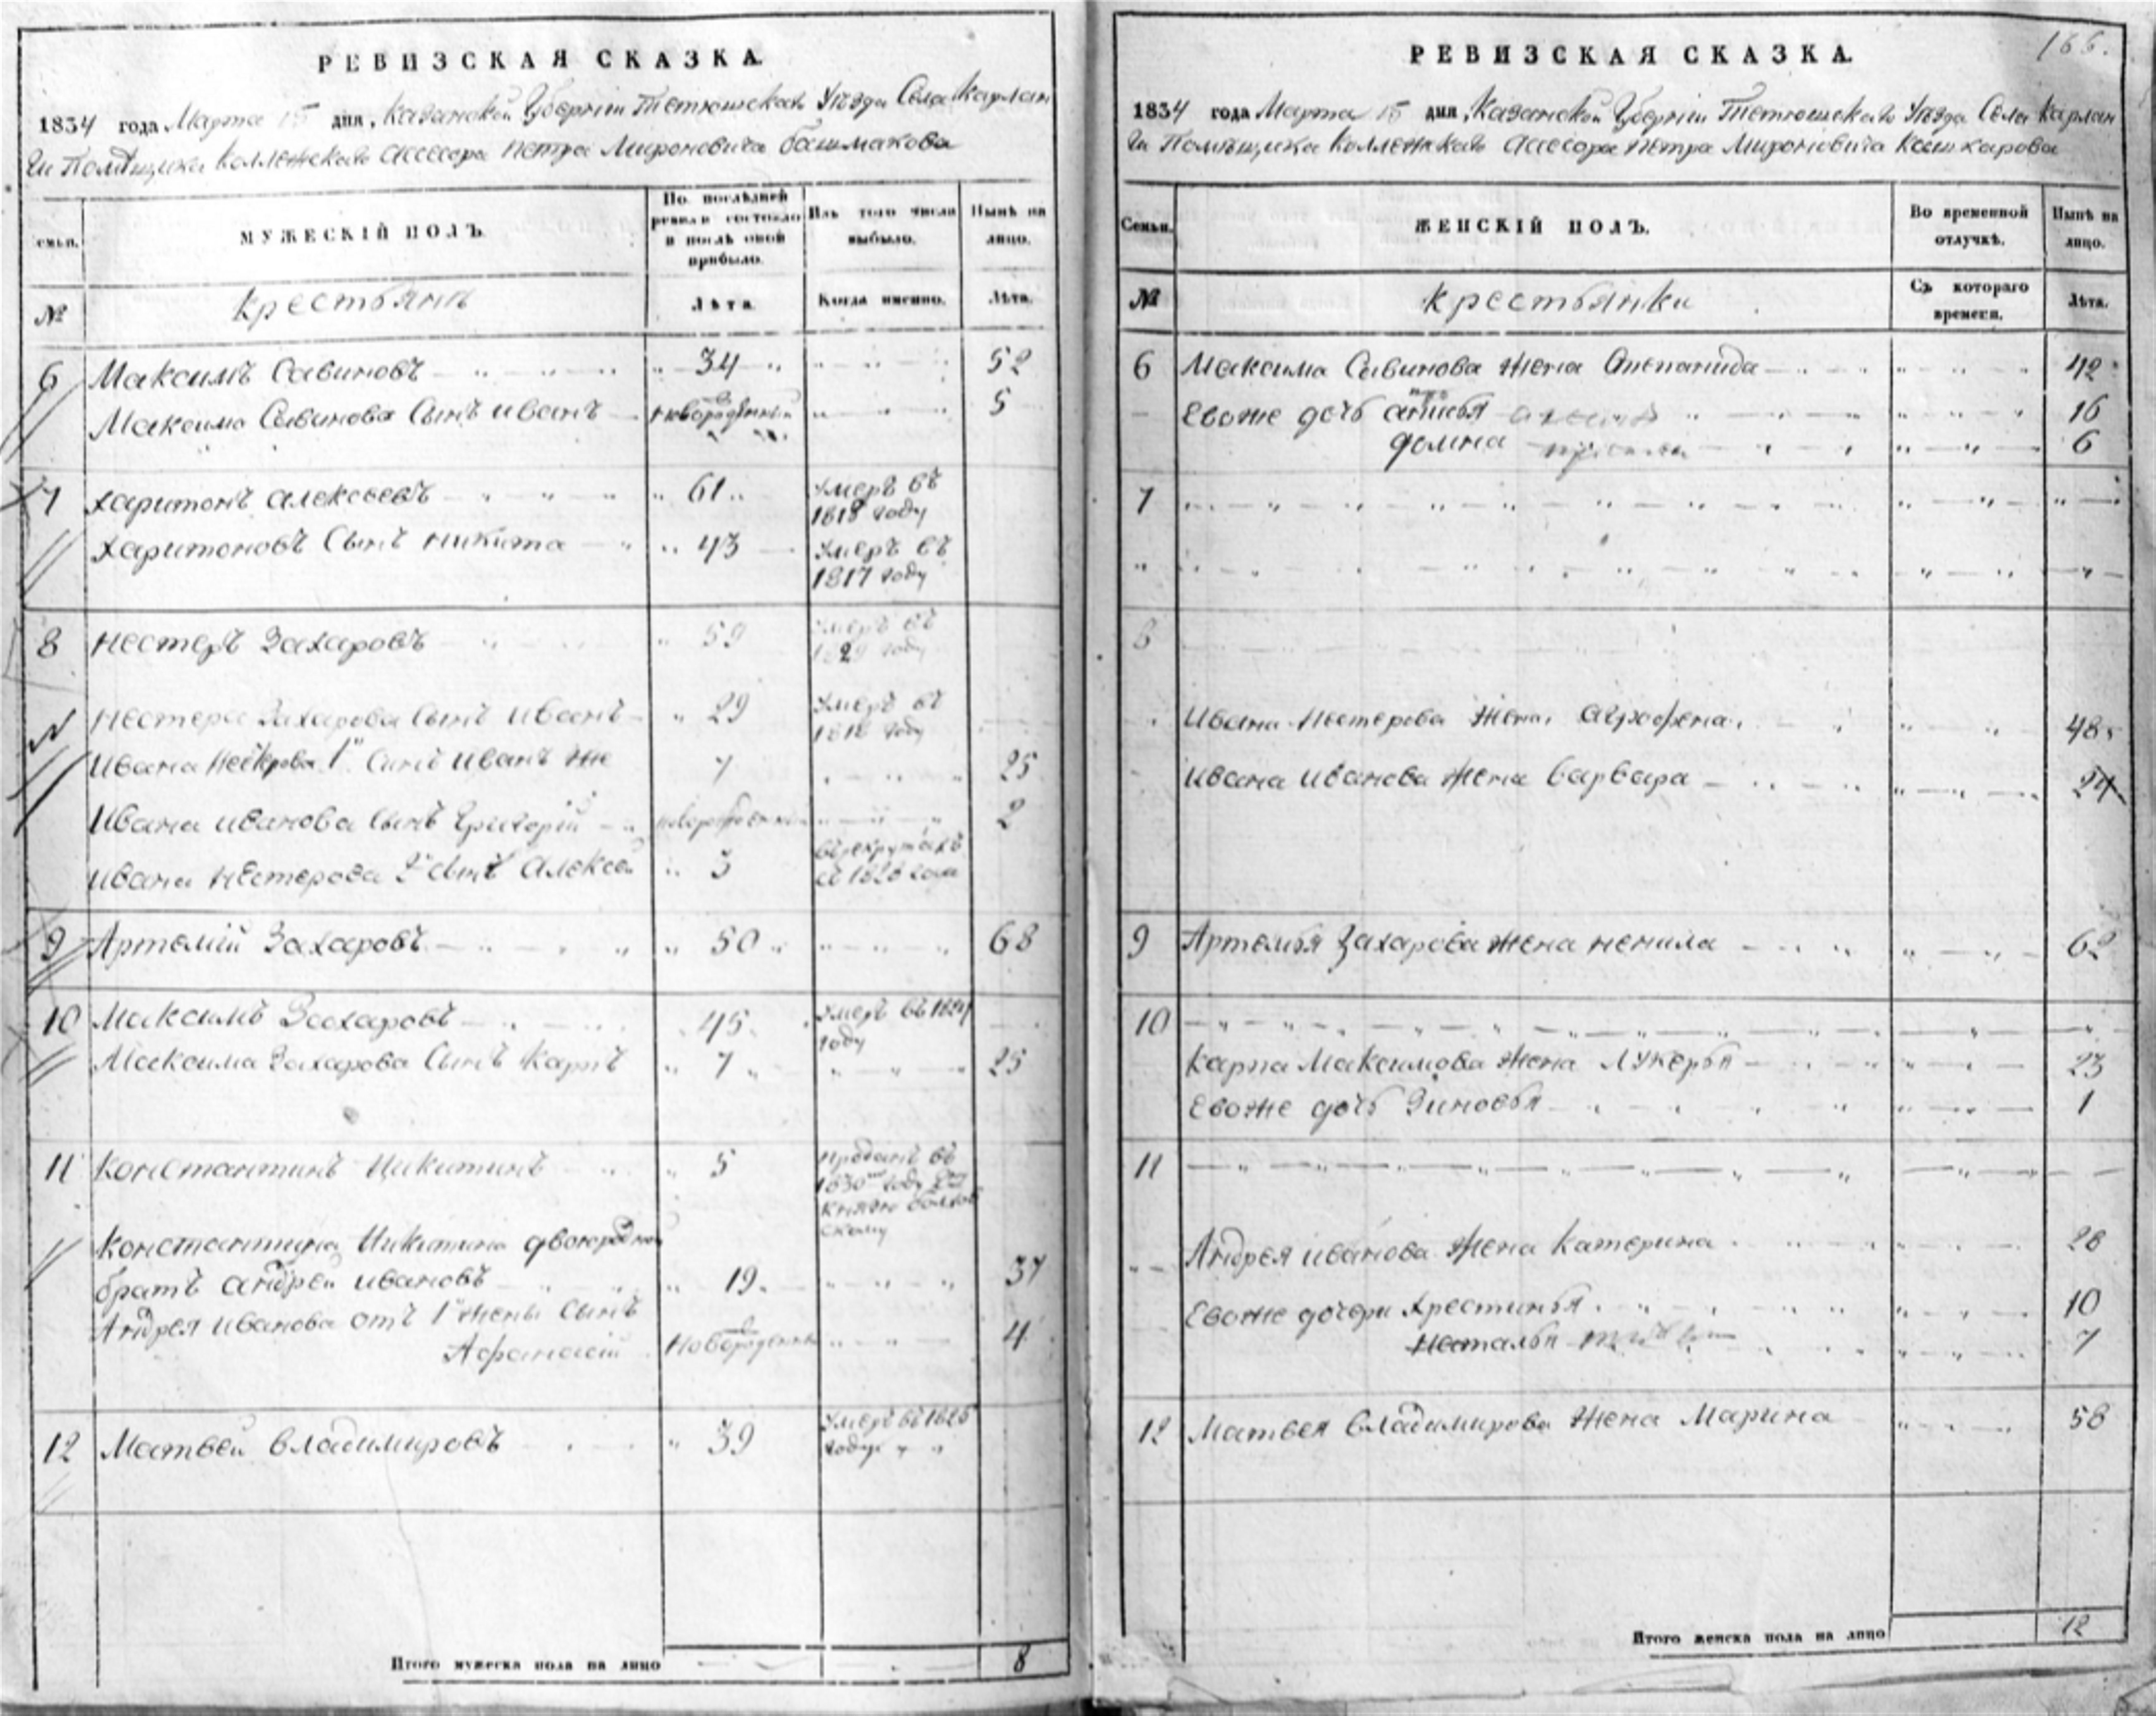 РЕВИЗСКАЯ СКАЗКА.
1834 года Марта 15 дня, Казанской Губернии Тетюшскаго Уезда Села Карлан
ги Помѣщика Коллежскаго Асесора Петра Мироновича
семьи. МУЖЕСКІЙ ПОЛЪ. По послѣдней ревизіи состояло и послѣ оной прибыло. Изъ того числа выбыло. Нынѣ на лицо.
№ Крестьяне Лѣта. Когда именно. Лѣта.
6 Максимъ Савиновъ 34 52
Максима Савинова Сынъ Иванъ новорожденный 5
7 Харитонъ Алексеевъ 61 Умеръ въ
1818 году
Харитоновъ Сынъ Никита 43 Умеръ въ
1817 году
8 Нестеръ Захаровъ 59 Умеръ въ
1829 году
Нестера Захарова Сынъ Иванъ 29 Умеръ въ
1818 году
Ивана Нестерова 1й Сынъ Иванъ же 7 25
Ивана Иванова Сынъ Григорій новорожденный 2
Ивана Нестерова 2й Сынъ Алексей 3 въ рекрутахъ
съ 1828 года
9 Артемій Захаровъ 50 68
10 Максимъ Захаровъ 45 Умеръ въ 1824
году
Максима Захарова Сынъ Карпъ 7 25
11 Константинъ Никитинъ 5 проданъ въ
1830 году
князю Болхов
скому
Константина Никитина двоюродной
братъ Андрей Ивановъ 19 37
Андрея Иванова отъ 1й жены Сынъ
Афанасій Новорожденный 4
12 Матвей Владимировъ 39 Умеръ въ 1825
году
Итого мужеска пола на лицо 8
166.
РЕВИЗСКАЯ СКАЗКА.
1834 года Марта 15 дня, Казанской Губернии Тетюшскаго Уезда Села Карлан
ги Помѣщика Коллежскаго Асесора Петра Мироновича Кашкарова
Семьи. ЖЕНСКІЙ ПОЛЪ. Во временной отлучкѣ. Нынѣ на лицо.
№ Крестьянки Съ котораго времени. Лѣта.
6 Максима Савинова жена Степанида 42
Евоже дочь 16
Домна 6
7
8
Ивана Нестерова жена Аграфена 48
Ивана Иванова жена Варвара 24
9 Артемья Захарова жена Ненила 62
10
Карпа Максимова жена Лукерья 23
Евоже дочь Зиновья 1
11
Андрея Иванова жена Катерина 28
Евоже дочери Хрестинья 10
Наталья 7
12 Матвея Владимирова жена Марина 58
Итого женска пола на лицо 12